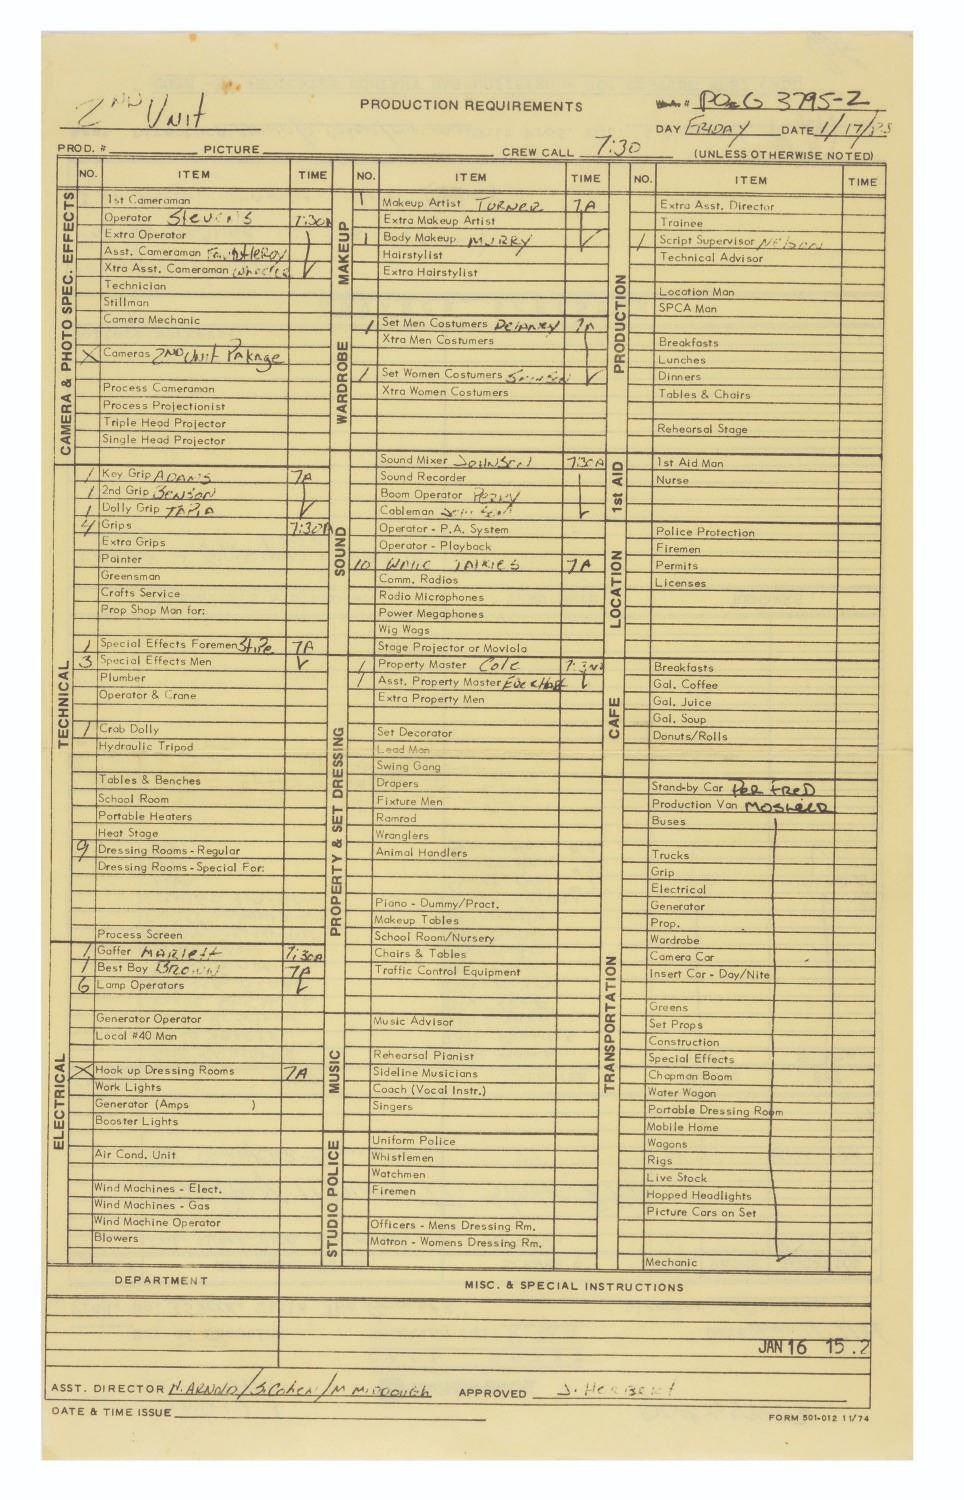 2ND Unit
PRODUCTION REQUIREMENTS
# 3795-2
DAY FRIDAY DATE 1/17/75
PROD. # PICTURE CREW CALL 7:30 (UNLESS OTHERWISE NOTED)
NO. ITEM TIME NO. ITEM TIME NO. ITEM TIME
CAMERA & PHOTO SPEC. EFFECTS
1st Cameraman
Operator Stevens 7:30A
Extra Operator
Asst. Cameraman
Xtra Asst. Cameraman Wheeler
Technician
Stillman
Camera Mechanic
X Cameras 2ND Unit PAKAGE
Process Cameraman
Process Projectionist
Triple Head Projector
Single Head Projector
TECHNICAL
1 Key Grip ADAMS 7A
1 2nd Grip BENSON
1 Dolly Grip TAPIA
4 Grips 7:30A
Extra Grips
Painter
Greensman
Crafts Service
Prop Shop Man for:
1 Special Effects Foremen 7A
3 Special Effects Men
Plumber
Operator & Crane
1 Crab Dolly
Hydraulic Tripod
Tables & Benches
School Room
Portable Heaters
Heat Stage
9 Dressing Rooms - Regular
Dressing Rooms - Special For:
Process Screen
ELECTRICAL
1 Gaffer 7:30A
1 Best Boy BROWN 7A
6 Lamp Operators
Generator Operator
Local #40 Man
X Hook up Dressing Rooms 7A
Work Lights
Generator (Amps )
Booster Lights
Air Cond. Unit
Wind Machines - Elect.
Wind Machines - Gas
Wind Machine Operator
Blowers
MAKEUP
1 Makeup Artist TURNER 7A
Extra Makeup Artist
1 Body Makeup MURRY
Hairstylist
Extra Hairstylist
WARDROBE
1 Set Men Costumers 7A
Xtra Men Costumers
1 Set Women Costumers
Xtra Women Costumers
SOUND
Sound Mixer JOHNSON 7:30A
Sound Recorder
Boom Operator PERRY
Cableman
Operator - P.A. System
Operator - Playback
10 TALKIES 7A
Comm. Radios
Radio Microphones
Power Megaphones
Wig Wags
Stage Projector or Moviola
PROPERTY & SET DRESSING
1 Property Master Cole 7:30A
1 Asst. Property Master
Extra Property Men
Set Decorator
Lead Man
Swing Gang
Drapers
Fixture Men
Ramrod
Wranglers
Animal Handlers
Piano - Dummy/Pract.
Makeup Tables
School Room/Nursery
Chairs & Tables
Traffic Control Equipment
MUSIC
Music Advisor
Rehearsal Pianist
Sideline Musicians
Coach (Vocal Instr.)
Singers
STUDIO POLICE
Uniform Police
Whistlemen
Watchmen
Firemen
Officers - Mens Dressing Rm.
Matron - Womens Dressing Rm.
PRODUCTION
Extra Asst. Director
Trainee
1 Script Supervisor NELSON
Technical Advisor
Location Man
SPCA Man
Breakfasts
Lunches
Dinners
Tables & Chairs
Rehearsal Stage
1st AID
1st Aid Man
Nurse
LOCATION
Police Protection
Firemen
Permits
Licenses
CAFE
Breakfasts
Gal. Coffee
Gal. Juice
Gal. Soup
Donuts/Rolls
TRANSPORTATION
Stand-by Car PER FRED
Production Van
Buses
Trucks
Grip
Electrical
Generator
Prop.
Wardrobe
Camera Car
Insert Car - Day/Nite
Greens
Set Props
Construction
Special Effects
Chapman Boom
Water Wagon
Portable Dressing Room
Mobile Home
Wagons
Rigs
Live Stock
Hopped Headlights
Picture Cars on Set
Mechanic
DEPARTMENT MISC. & SPECIAL INSTRUCTIONS
JAN 16 15.2
ASST. DIRECTOR H. ARNOLD/S. Cohen/M APPROVED J. HERBERT
DATE & TIME ISSUE
FORM 501-012 11/74